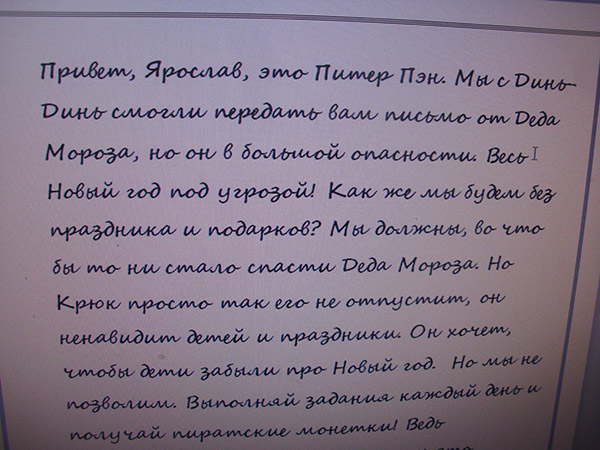 Привет, Ярослав, это Питер Пэн. Мы с Динь-
Динь смогли передать вам письмо от Деда
Мороза, но он в большой опасности. Весь
Новый год под угрозой! Как же мы будем без
праздника и подарков? Мы должны, во что
бы то ни стало спасти Деда Мороза. Но
Крюк просто так его не отпустит, он
ненавидит детей и праздники. Он хочет,
чтобы дети забыли про Новый год. Но мы не
позволим. Выполняй задания каждый день и
получай пиратские монетки! Ведь